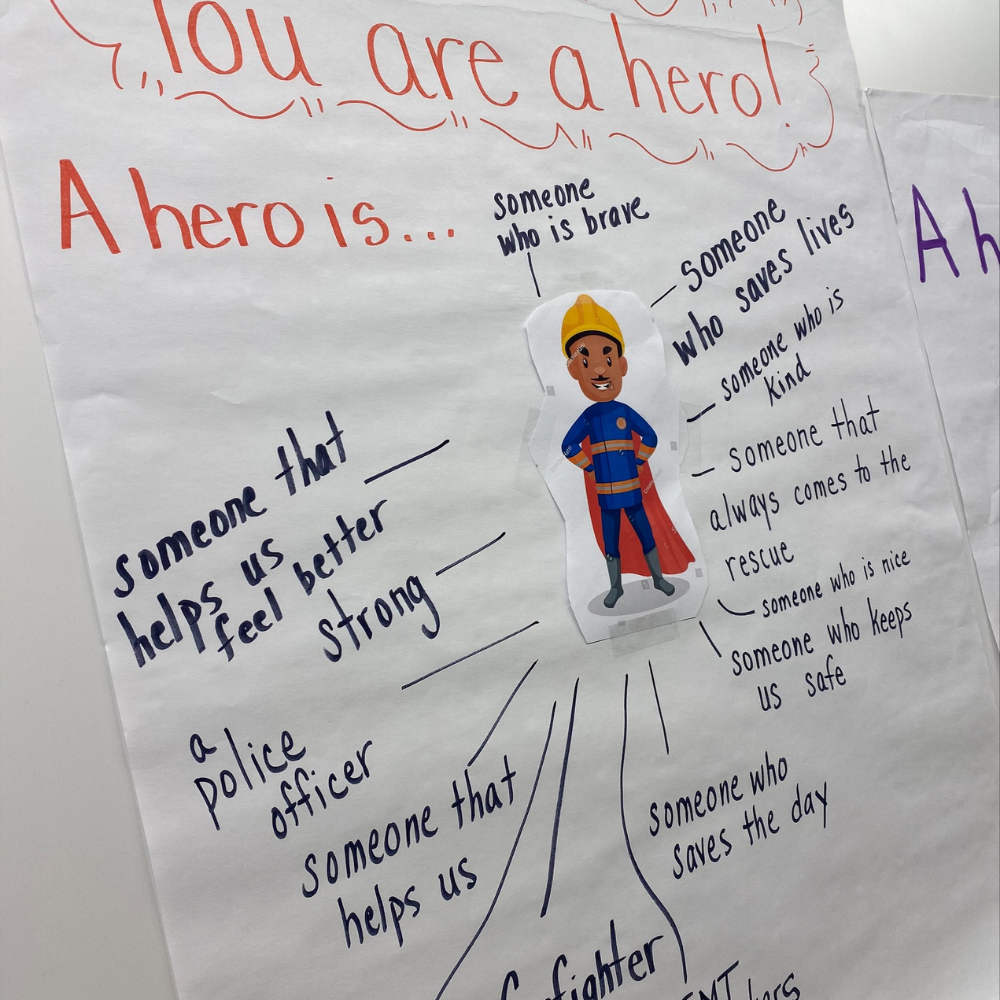 You are a hero!
A hero is...
someone
who is brave
someone
who saves lives
someone who is
kind
someone that
always comes to the
rescue
someone who is nice
someone who keeps
us safe
someone that
helps us
feel better
strong
a
police
officer
someone that
helps us
someone who
saves the day
firefighter
EMT
A h